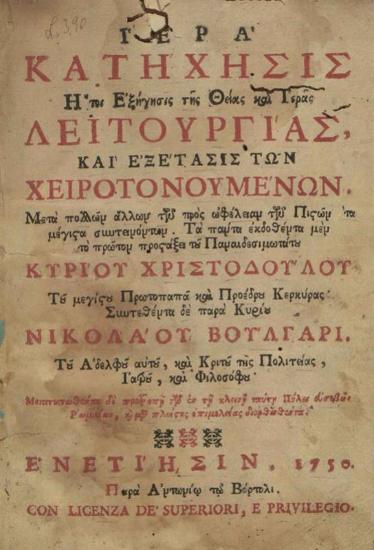 L. 3,90
ΙΕΡΑ'
ΚΑΤΗΧΗΣΙΣ
Ἤτοι Ἐξήγησις τῆς Θείας καὶ Ἱερᾶς
ΛΕΙΤΟΥΡΓΙΑΣ,
ΚΑΙ ἘΞΈΤΑΣΙΣ ΤΩΝ
ΧΕΙΡΟΤΟΝΟΥΜΕΝΩΝ.
Μετὰ πολλῶν ἄλλων τῶν πρὸς ὠφέλειαν τῶν Πιστῶν τὰ
μέγιστα συντεινόντων. Τὰ πάντα ἐκδοθέντα μὲν
τὸ πρῶτον προστάξει τοῦ Παναιδεσιμωτάτου
ΚΥΡΙΟΥ ΧΡΙΣΤΟΔΟΥΛΟΥ
Τοῦ μεγίστου Πρωτοπαπᾶ καὶ Προέδρου Κερκύρας.
Συντεθέντα δὲ παρὰ Κυρίου
ΝΙΚΟΛΑΌΥ ΒΟΥΛΓΑΡΙ.
Τοῦ Ἀδελφοῦ αὐτοῦ, καὶ Κριτοῦ τῆς Πολιτείας,
Ἰατροῦ, καὶ Φιλοσόφου.
Μετατυπωθέντα δὲ
καὶ μετὰ πλείστης ἐπιμελείας διορθωθέντα.
ΕΝΕΤΙΗΣΙΝ, 1750.
Παρὰ Ἀντωνίῳ τῷ Βόρτολι.
CON LICENZA DE' SUPERIORI, E PRIVILEGIO.